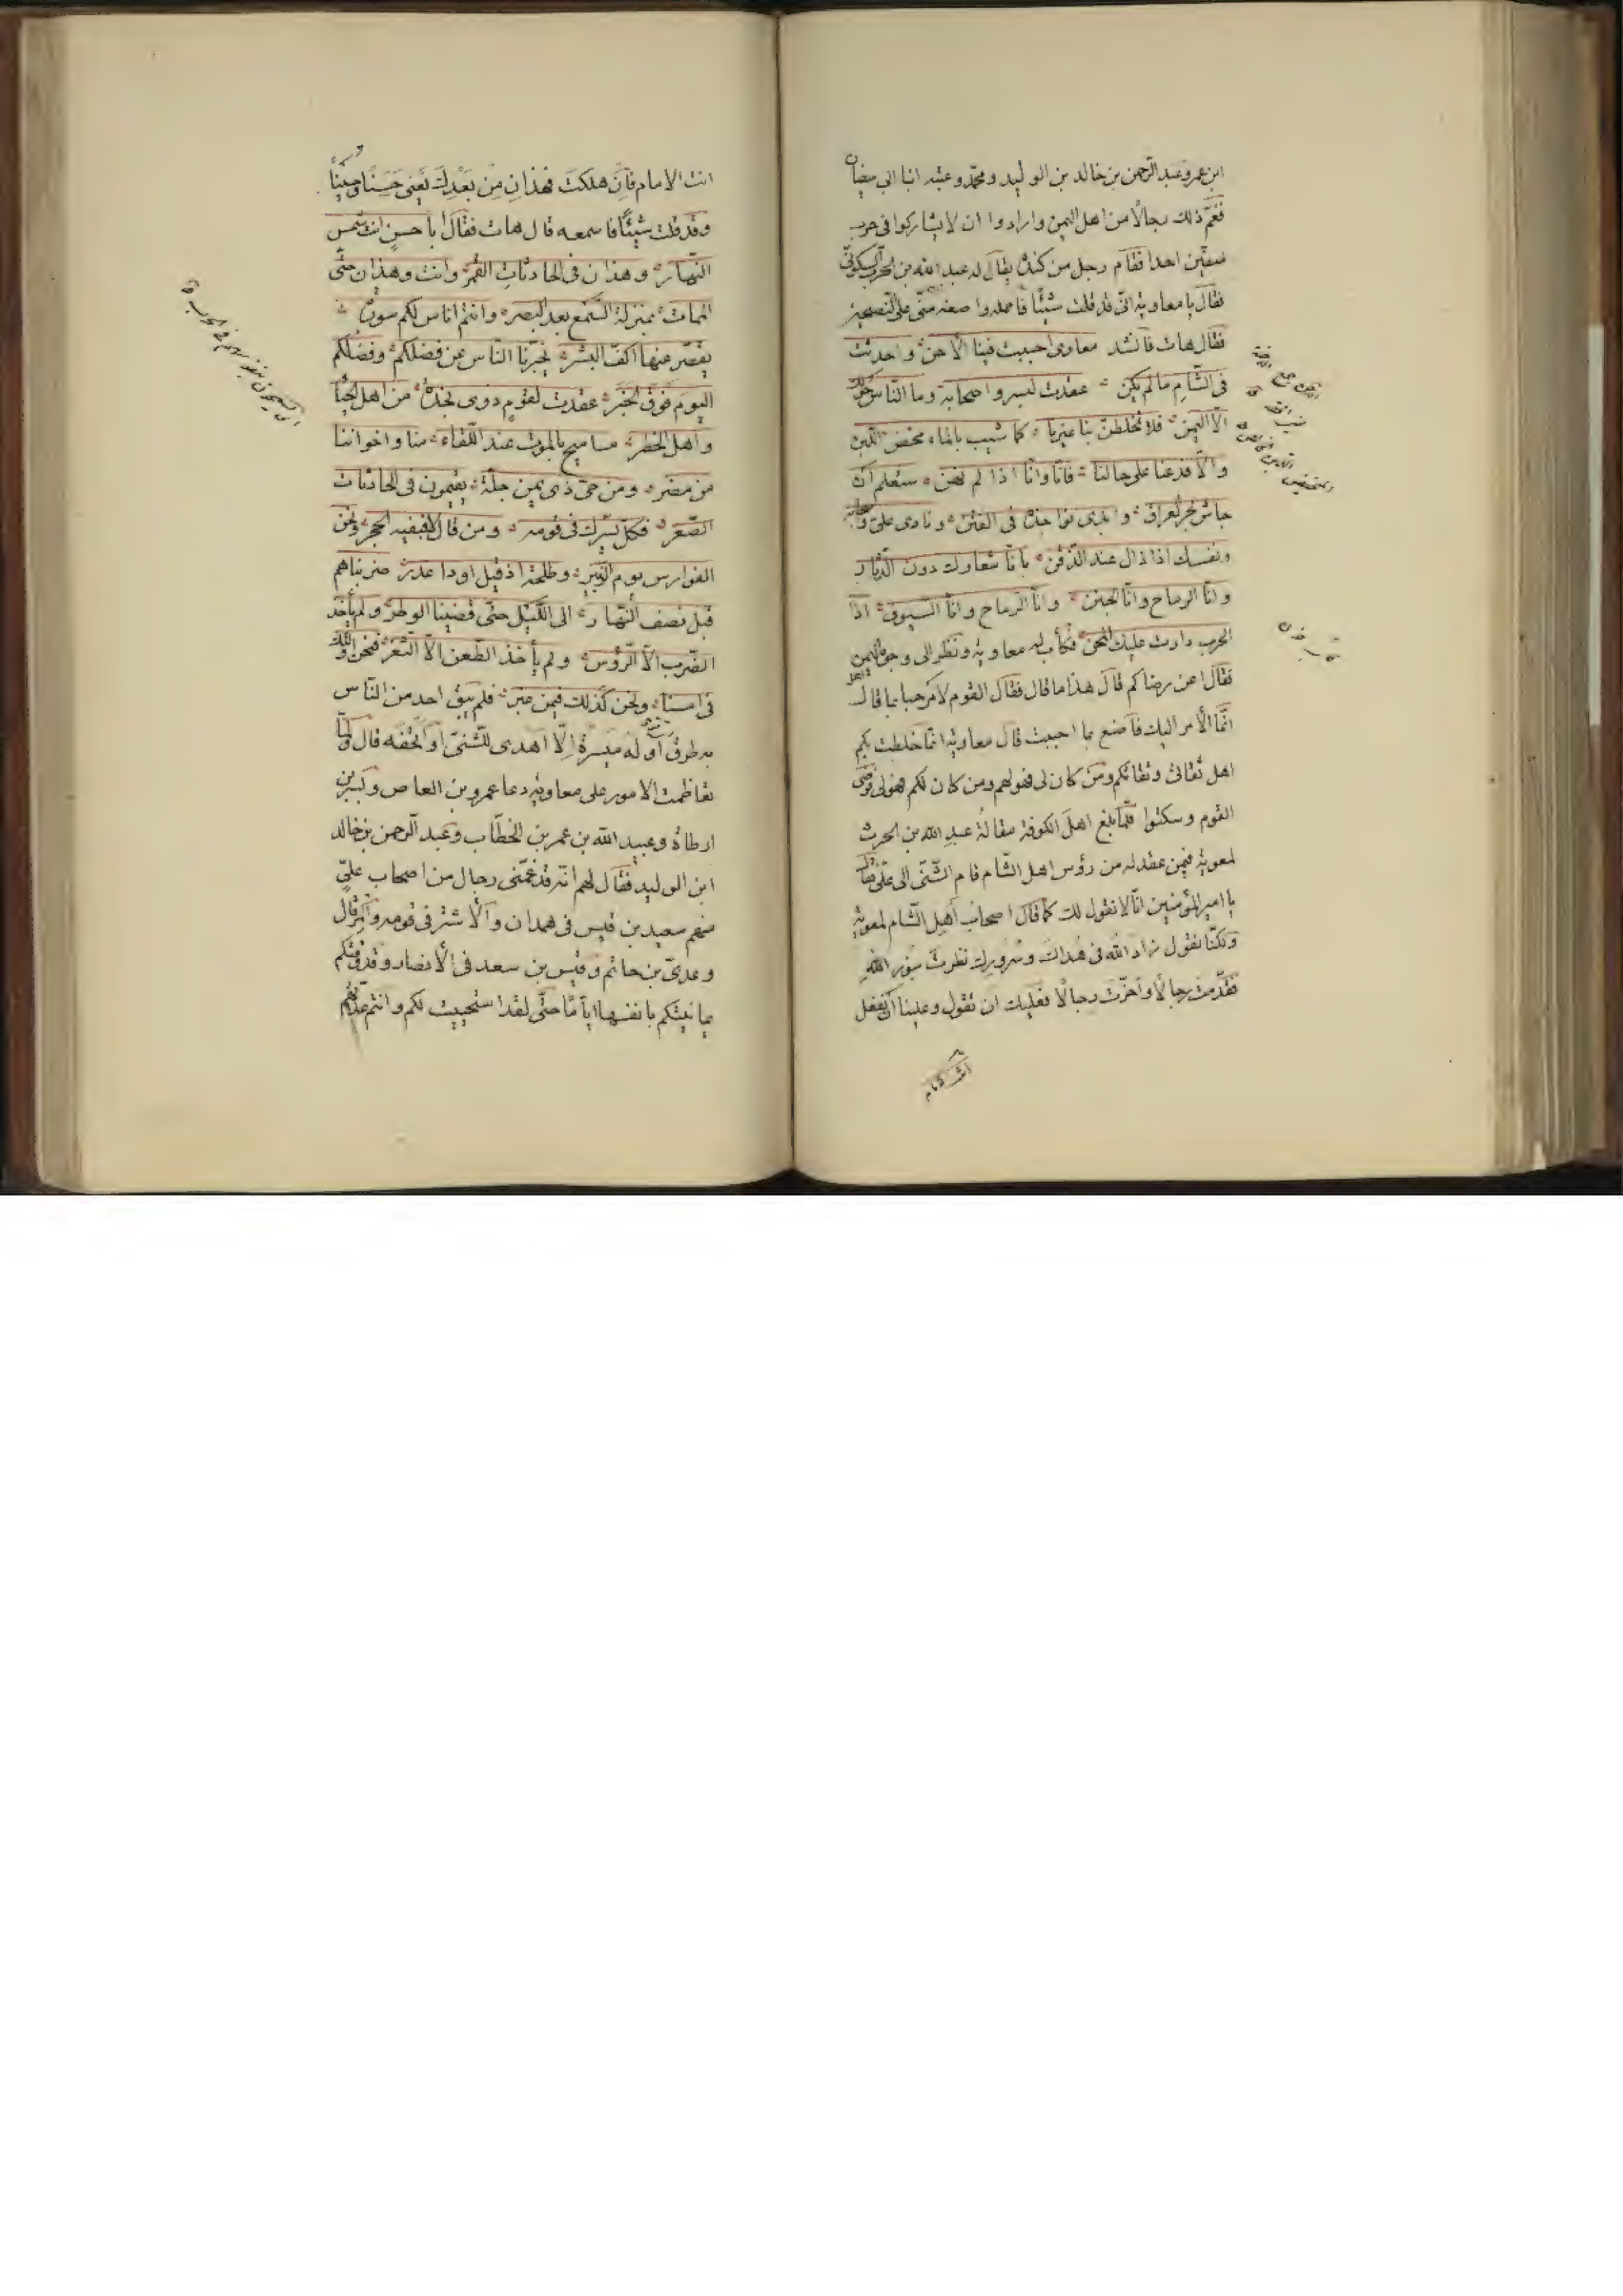 ابن عمرو وعبد الرحمن بن خالد بن الوليد ومحمد وعتبه ابنا ابي سفيان
فغم ذلك رجالًا من اهل اليمن وارادوا ان لا يشاركوا فى حرب
صفين احدا فقام رجل من كندة يقال له عبد الله بن الحرث السكونى
فقال يا معاوية انى قد قلت شيئًا فاحملوا صفته منى على النصيحة
فقال هات فانشد معاوى احييت فينا الاحن واحدثت
فى الشام ما لم يكن عقدت لبسر واصحابه وما الناس حولك
الا اليمن فلا تخلطن بنا غيرنا كما شيب بالماء محض اللبن
والا فدعنا على حالنا فانا وانا اذا لم نهن ستعلم ان
جاش بحر العراق وابدى نواجذه فى الفتن ونادى على واصحابه
ونفسك اذ ذاك عند الذقن بانا شعارك دون الدثار
وانا الرماح وانا الجنن وانا الرماح وانا السيوف اذا
الحرب دارت عليك المحن فكأب له معاوية ونظر الى وجوه اهل اليمن
فقال اعن رضاكم قال هذا ما قال فقال القوم لا مرحبا بما قال
انما الامر اليك فاصنع ما احببت قال معاوية انما خلطت بكم
اهل ثقاتى وثقاتكم ومن كان لى فهو لهم ومن كان لكم فهو لى فرضى
القوم وسكتوا فلما بلغ اهل الكوفة مقالة عبد الله بن الحرث
لمعوية فيمن عقد له من رؤس اهل الشام قام الشنى الى على فقال
يا امير المؤمنين انا لا نقول لك كما قال اصحاب اهل الشام لمعوية
ولكنا نقول زاد الله فى هداك وسرورك نظرت بنور الله
فقدمت رجالًا واخرت رجالًا فعليك ان تقول وعلينا ان نفعل
انت الامام
انت الامام فان هلكت فهذان من بعدك يعنى حسنًا وحسينًا
وقد قلت شيئًا فاسمعه قال هات فقال ابا حسن انت شمس
النهار وهذان فى الحادثات القمر وانت وهذان حتى
الممات بمنزلة السمع بعد البصر وانتم اناس لكم سورة
يقصر عنها اكف البشر يخبرنا الناس عن فضلكم وفضلكم
اليوم فوق الخبر عقدت لقوم ذوى نجدة من اهل الحياء
واهل الخطر مساميح بالموت عند اللقاء منا واخواننا
من مضر ومن حى ذى يمن جلة يقيمون فى الحادثات
الصعر فكل يسرك فى قومه ومن قال لا فبفيه الحجر ونحن
الفوارس يوم الزبير وطلحة اذ قيل اودا غدر ضربناهم
قبل نصف النهار الى الليل حتى قضينا الوطر ولم يأخذ
الضرب الا الرؤس ولم يأخذ الطعن الا الثغر فنحن اولئك
فى امسنا ونحن كذلك فيمن غبر فلم يبق احد من الناس
به طرق او له ميسرة الا اهدى للشنى او اتحفه قال ولما
تعاظمت الامور على معاوية دعا عمرو بن العاص وبسر بن
ارطاة وعبيد الله بن عمر بن الخطاب وعبد الرحمن بن خالد
ابن الوليد فقال لهم انه قد غمنى رجال من اصحاب على
منهم سعيد بن قيس فى همدان والاشتر فى قومه والمرقال
وعدى بن حاتم وقيس بن سعد فى الانصار وقد وقتكم
يمانيتكم بانفسها ايامًا حتى لقد استحييت لكم وانتم عدتهم